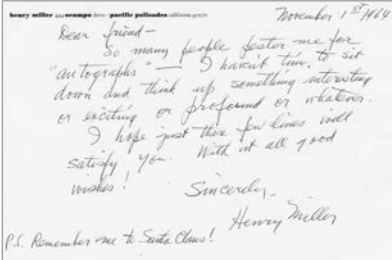 henry miller 444 ocampo drive - pacific palisades california 90272
November 1st/1964
Dear friend-
So many people pester me for
"autographs" — I haven't time to sit
down and think up something interesting
or exciting or profound or whatever.
I hope just these few lines will
satisfy you. With it all good
wishes!
Sincerely-
Henry Miller
P.S. Remember me to Santa Claus!